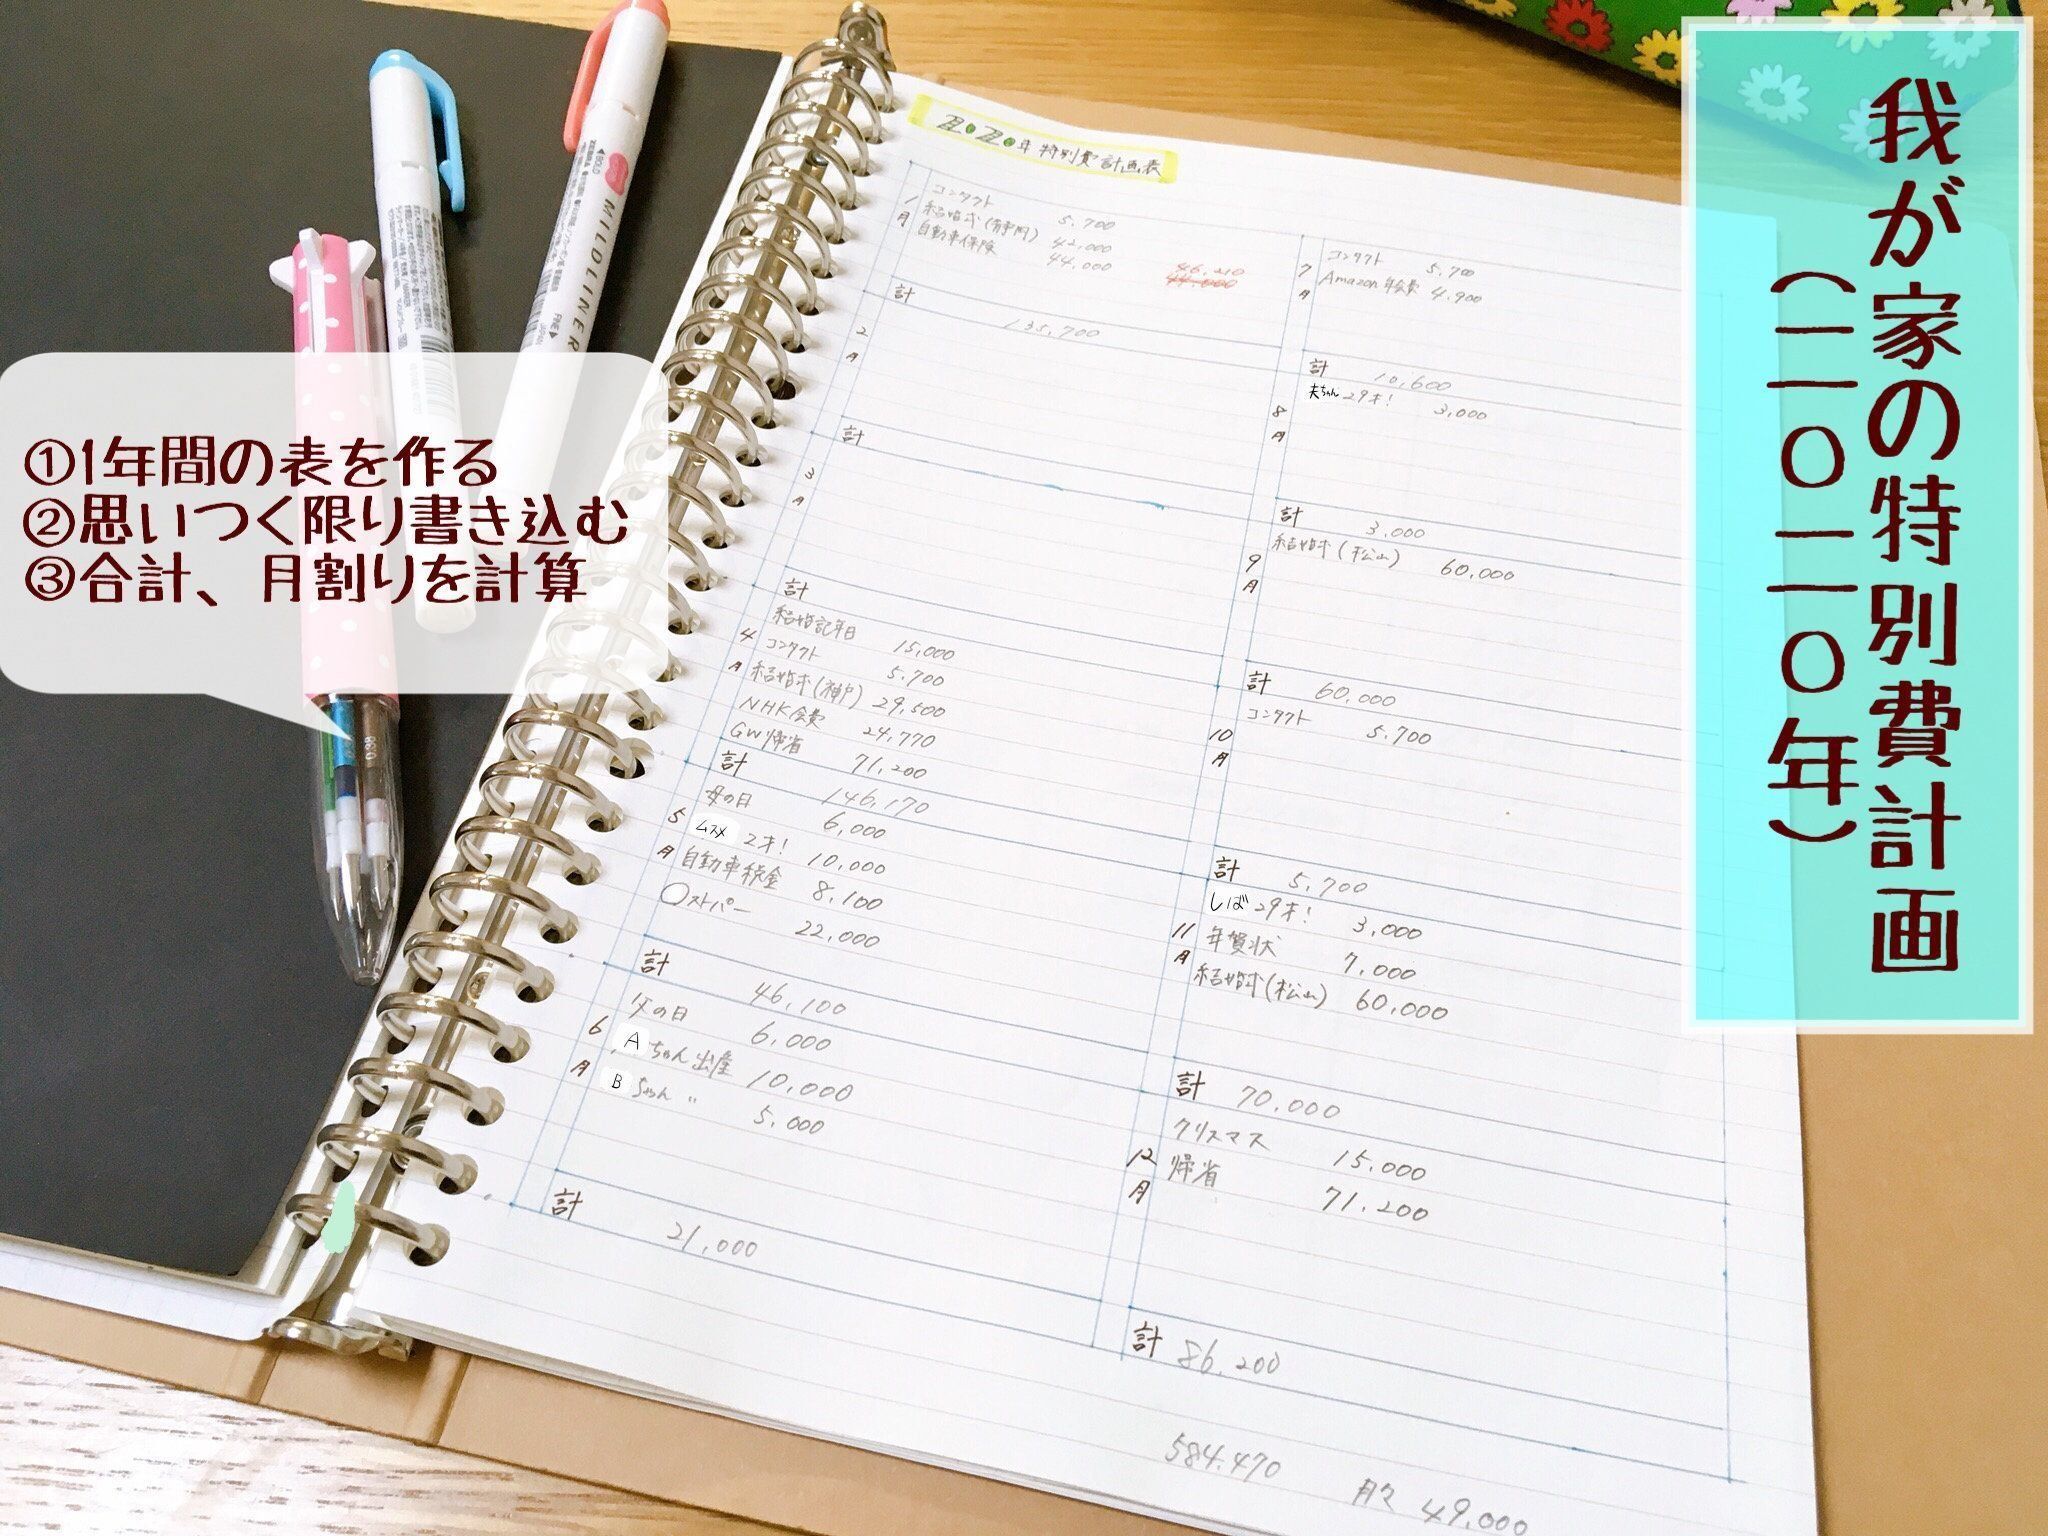 我が家の特別費計画
(二〇二〇年)
①1年間の表を作る
②思いつく限り書き込む
③合計、月割りを計算
MILDLINER
BOLD
ZEBRA
FINE
0.38
2020年 特別費計画表
1月
コンタクト 5,700
結婚式(静岡) 42,000
自動車保険 44,000
46,210
44,000
計 135,700
2月
計
3月
計
4月
結婚記年日 15,000
コンタクト 5,700
結婚式(神戸) 29,500
NHK会費 24,770
GW帰省 71,200
計 146,170
5月
母の日 6,000
ムスメ 2才! 10,000
自動車税金 8,100
〇ストパー 22,000
計 46,100
6月
父の日 6,000
Aちゃん出産 10,000
Bちゃん 〃 5,000
計 21,000
7月
コンタクト 5,700
Amazon年会費 4,900
計 10,600
8月
夫ちゃん 29才! 3,000
計 3,000
9月
結婚式(松山) 60,000
計 60,000
10月
コンタクト 5,700
計 5,700
11月
しば 29才! 3,000
年賀状 7,000
結婚式(松山) 60,000
計 70,000
12月
クリスマス 15,000
帰省 71,200
計 86,200
584,470
月々 49,000